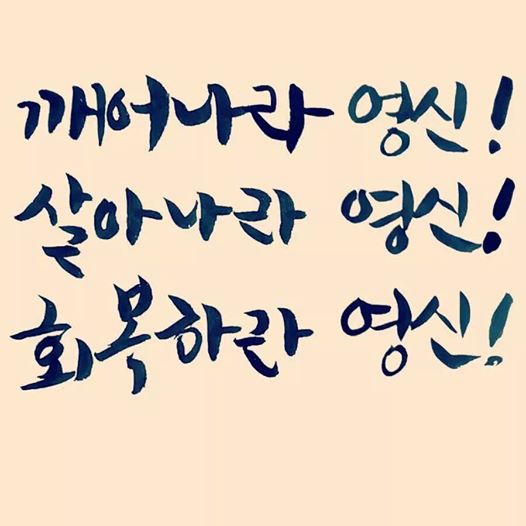 깨어나라 영신!
살아나라 영신!
회복하라 영신!